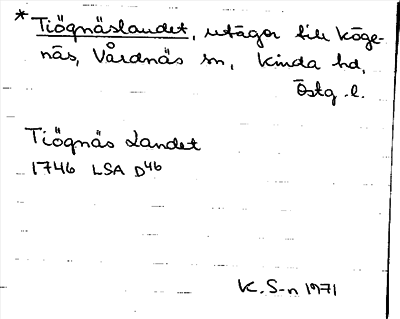 * Tiögnäslandet, utägor till Köge-
näs, Vårdnäs sn, Kinda hd,
Östg. l.
Tiögnäs Landet
1746 LSA D46
K. S-n 1971